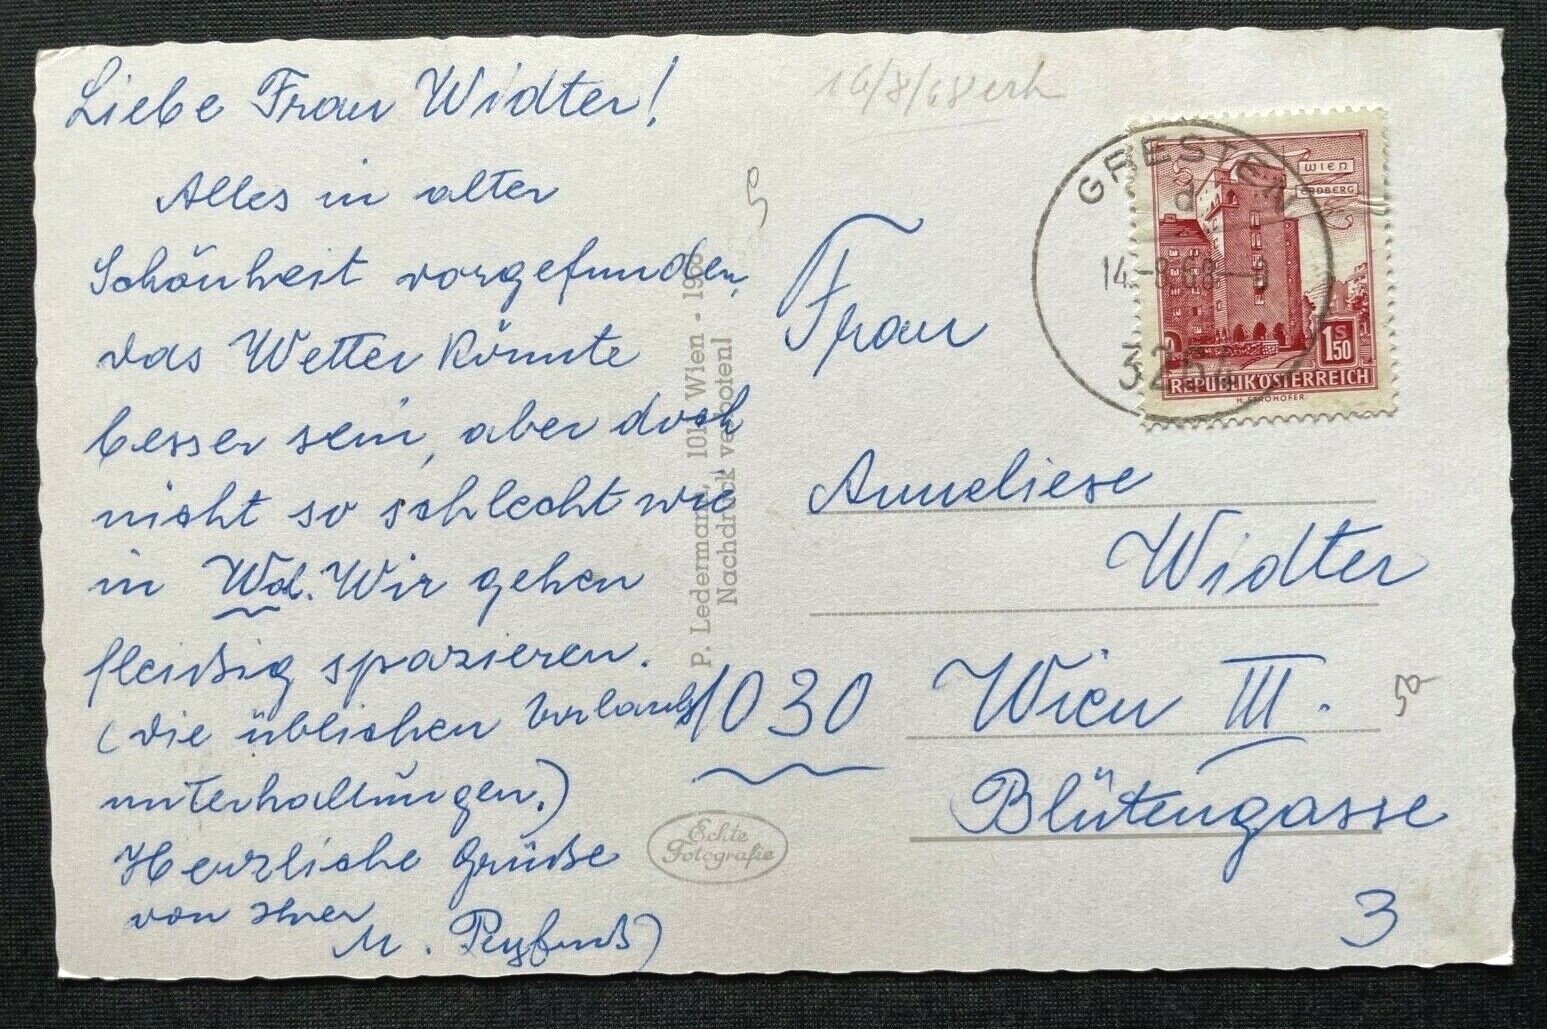 Liebe Frau Widter!
Alles in alter
Schönheit vorgefunden,
das Wetter könnte
besser sein, aber doch
nicht so schlecht wie
in Wd. Wir gehen
fleißig spazieren.
(die üblichen Vorlauf
unterhaltungen.)
Herzliche Grüße
von Ihrer
M.
P. Ledermann, 101 Wien - 196
Nachdruck verboten!
Echte
Fotografie
16/8/68 erh
GRESTEN
d
14.-8.68-
3264
WIEN
ERDBERG
1S50
REPUBLIK ÖSTERREICH
H. STROHOFER
Frau
Anneliese
Widter
1030 Wien III.
Blütengasse
3
50